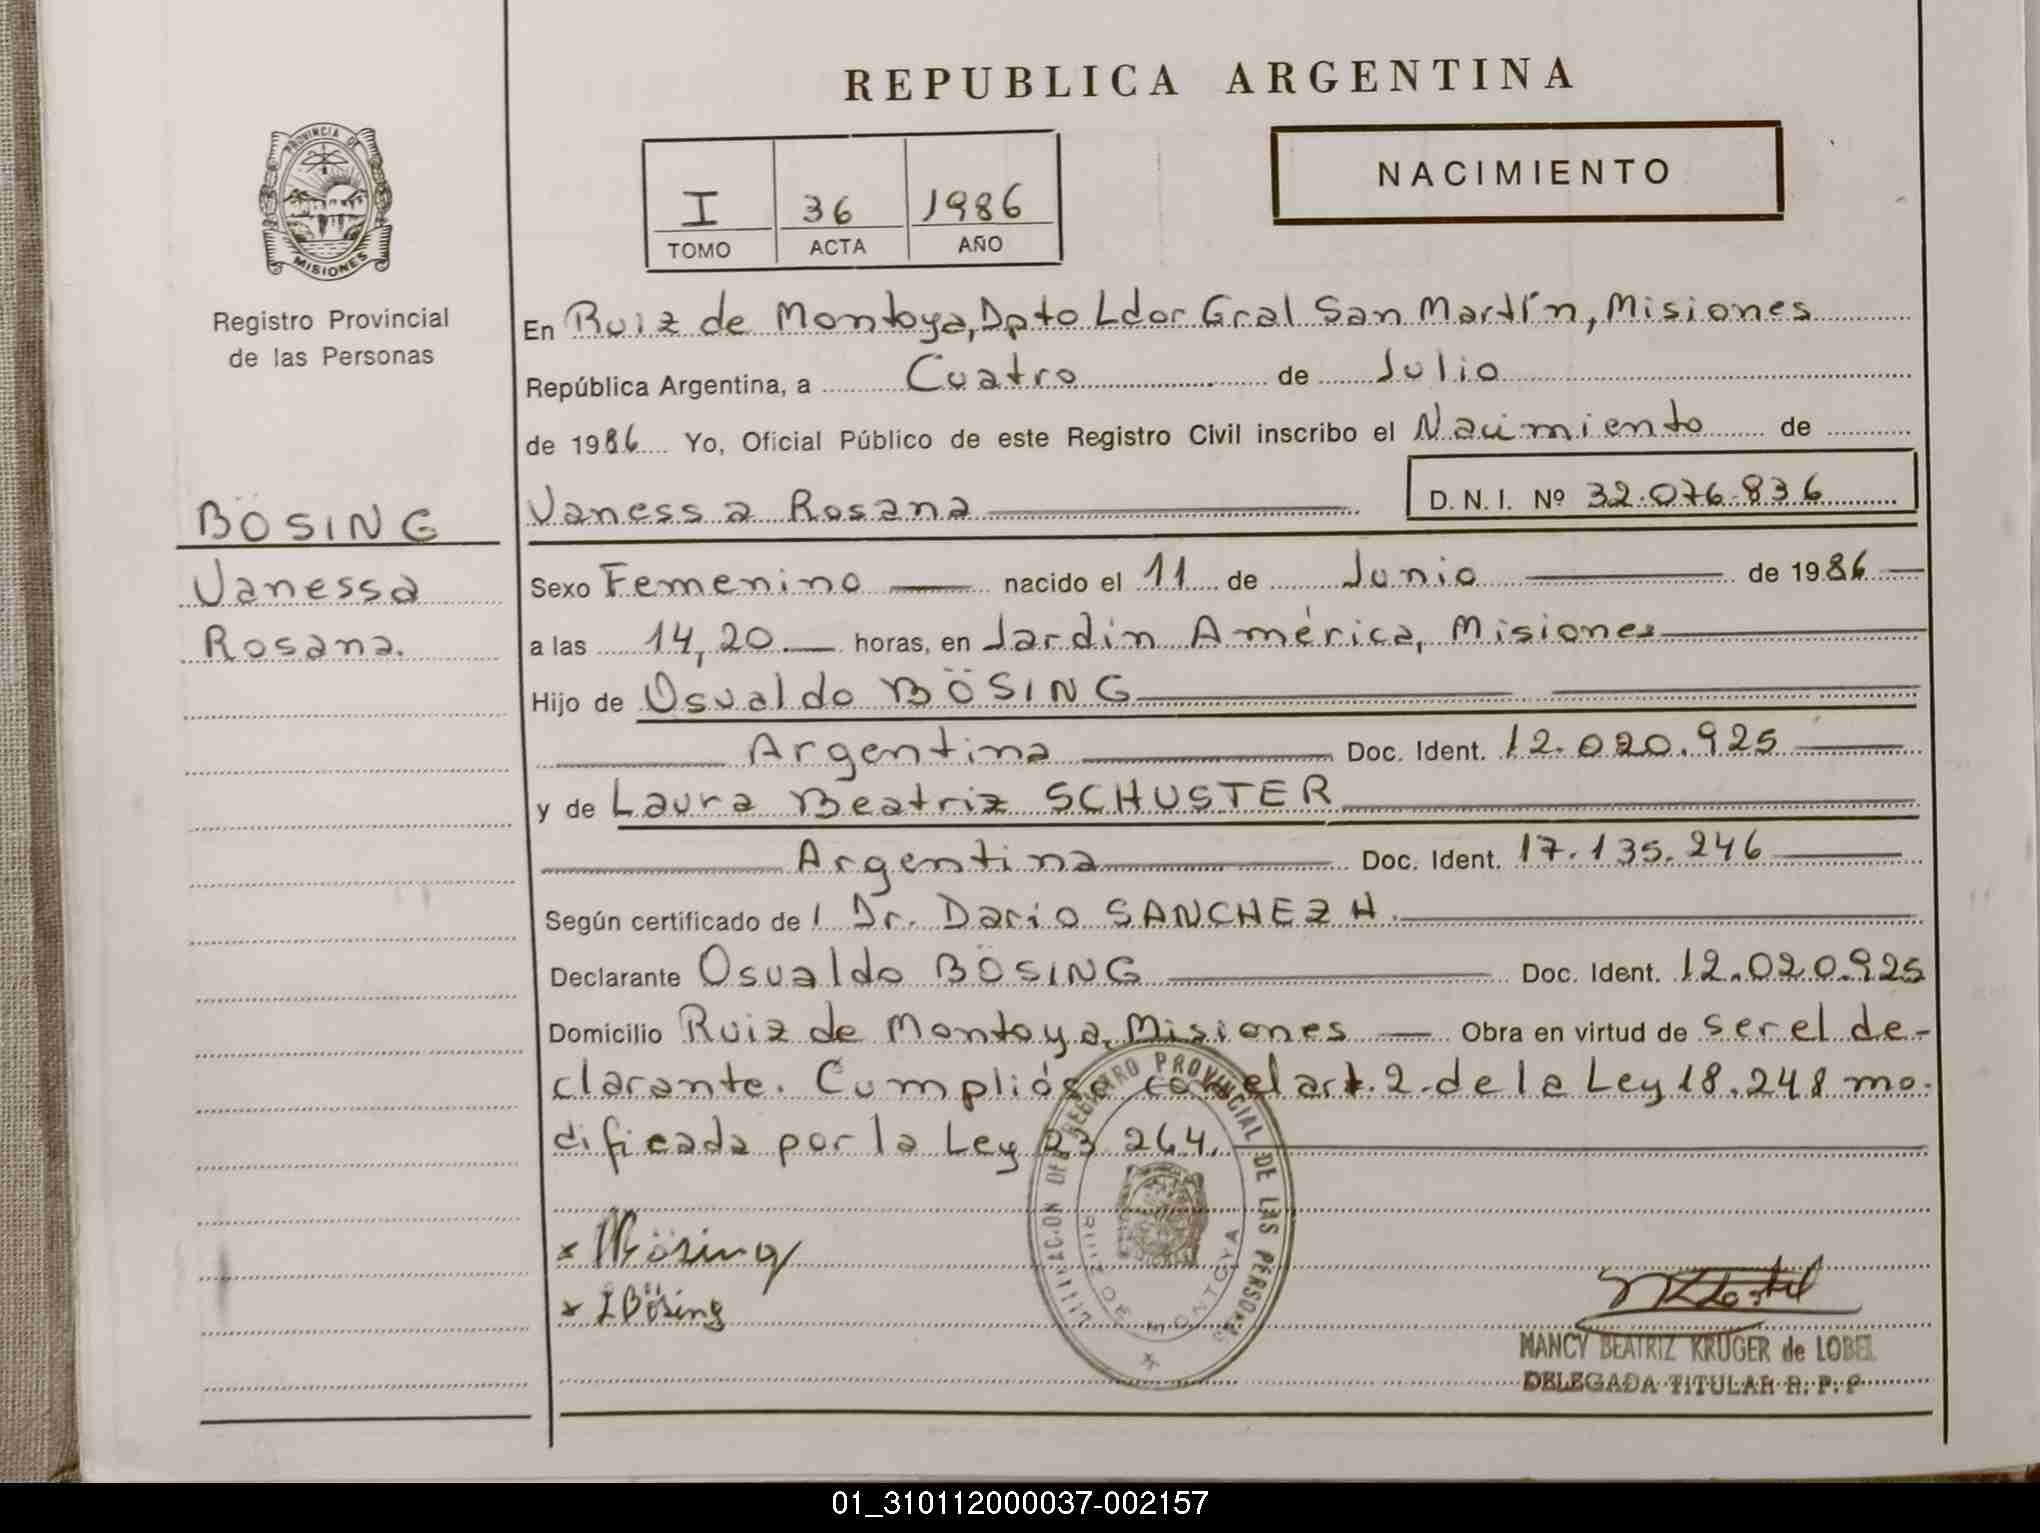 REPUBLICA ARGENTINA
PROVINCIA DE
MISIONES
Registro Provincial
de las Personas
I 36 1986
TOMO ACTA AÑO
NACIMIENTO
En Ruiz de Montoya, Dpto Ldor Gral San Martín, Misiones
República Argentina, a Cuatro de Julio
de 1986 Yo, Oficial Público de este Registro Civil inscribo el Nacimiento de
BÖSING
Vanessa
Rosana.
Vanessa Rosana D. N. I. Nº 32.076.836
Sexo Femenino nacido el 11 de Junio de 1986
a las 14,20 horas, en Jardín América, Misiones
Hijo de Osvaldo BÖSING
Argentina Doc. Ident. 12.020.925
y de Laura Beatriz SCHUSTER
Argentina Doc. Ident. 17.135.246
Según certificado de / Dr. Dario SANCHEZ H.
Declarante Osvaldo BÖSING Doc. Ident. 12.020.925
Domicilio Ruiz de Montoya, Misiones Obra en virtud de ser el de-
clarante. Cumplióse con el art. 2 de la Ley 18.248 mo-
dificada por la Ley 23.264.
DEL REGISTRO PROVINCIAL DE LAS PERSONAS
RUIZ DE MONTOYA
x Bösing
x LBösing
NANCY BEATRIZ KRUGER de LOBEL
DELEGADA TITULAR R. P. P
01_310112000037-002157